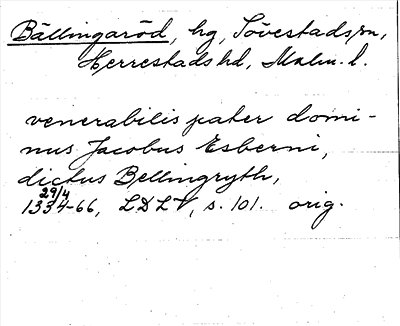 Bällingaröd, hg, Sövestads sn,
Herrestads hd, Malm. l.
venerabilis pater domi-
nus Jacobus Esberni,
dictus Bellingryth,
29/4
1334-66, LDLV, s. 101. orig.